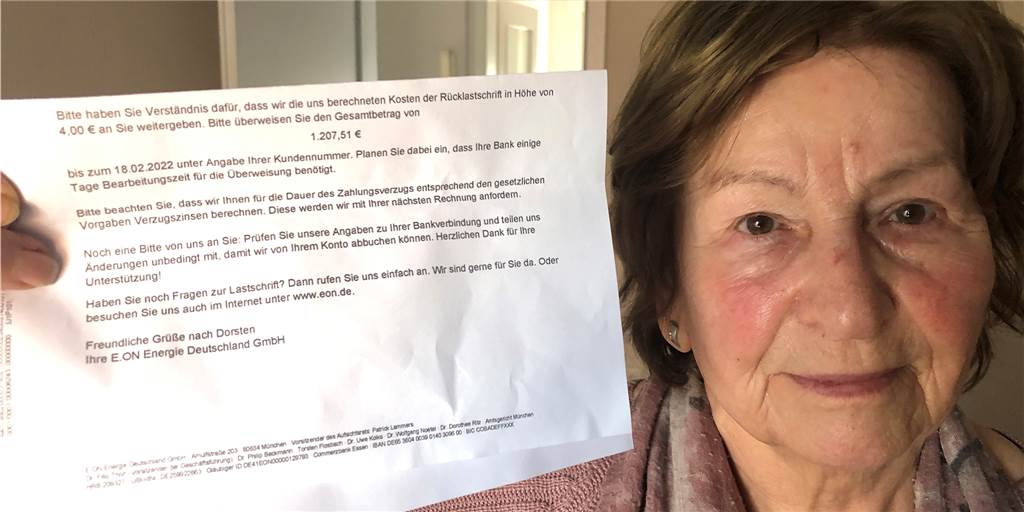 Bitte haben Sie Verständnis dafür, dass wir die uns berechneten Kosten der Rücklastschrift in Höhe von
4,00 € an Sie weitergeben. Bitte überweisen Sie den Gesamtbetrag von
1.207,51 €
bis zum 18.02.2022 unter Angabe Ihrer Kundennummer. Planen Sie dabei ein, dass Ihre Bank einige
Tage Bearbeitungszeit für die Überweisung benötigt.
Bitte beachten Sie, dass wir Ihnen für die Dauer des Zahlungsverzugs entsprechend den gesetzlichen
Vorgaben Verzugszinsen berechnen. Diese werden wir mit Ihrer nächsten Rechnung anfordern.
Noch eine Bitte von uns an Sie: Prüfen Sie unsere Angaben zu Ihrer Bankverbindung und teilen uns
Änderungen unbedingt mit, damit wir von Ihrem Konto abbuchen können. Herzlichen Dank für Ihre
Unterstützung!
Haben Sie noch Fragen zur Lastschrift? Dann rufen Sie uns einfach an. Wir sind gerne für Sie da. Oder
besuchen Sie uns auch im Internet unter www.eon.de.
Freundliche Grüße nach Dorsten
Ihre E.ON Energie Deutschland GmbH
Energie Deutschland GmbH Arnulfstraße 203 80634 München Vorsitzender des Aufsichtsrats: Patrick Lammers
Dr. Philip Beckmann Torsten Dr. Uwe Kolks Dr. Wolfgang Noetel Dr. Dorothee Ritz Amtsgericht München
Commerzbank Essen